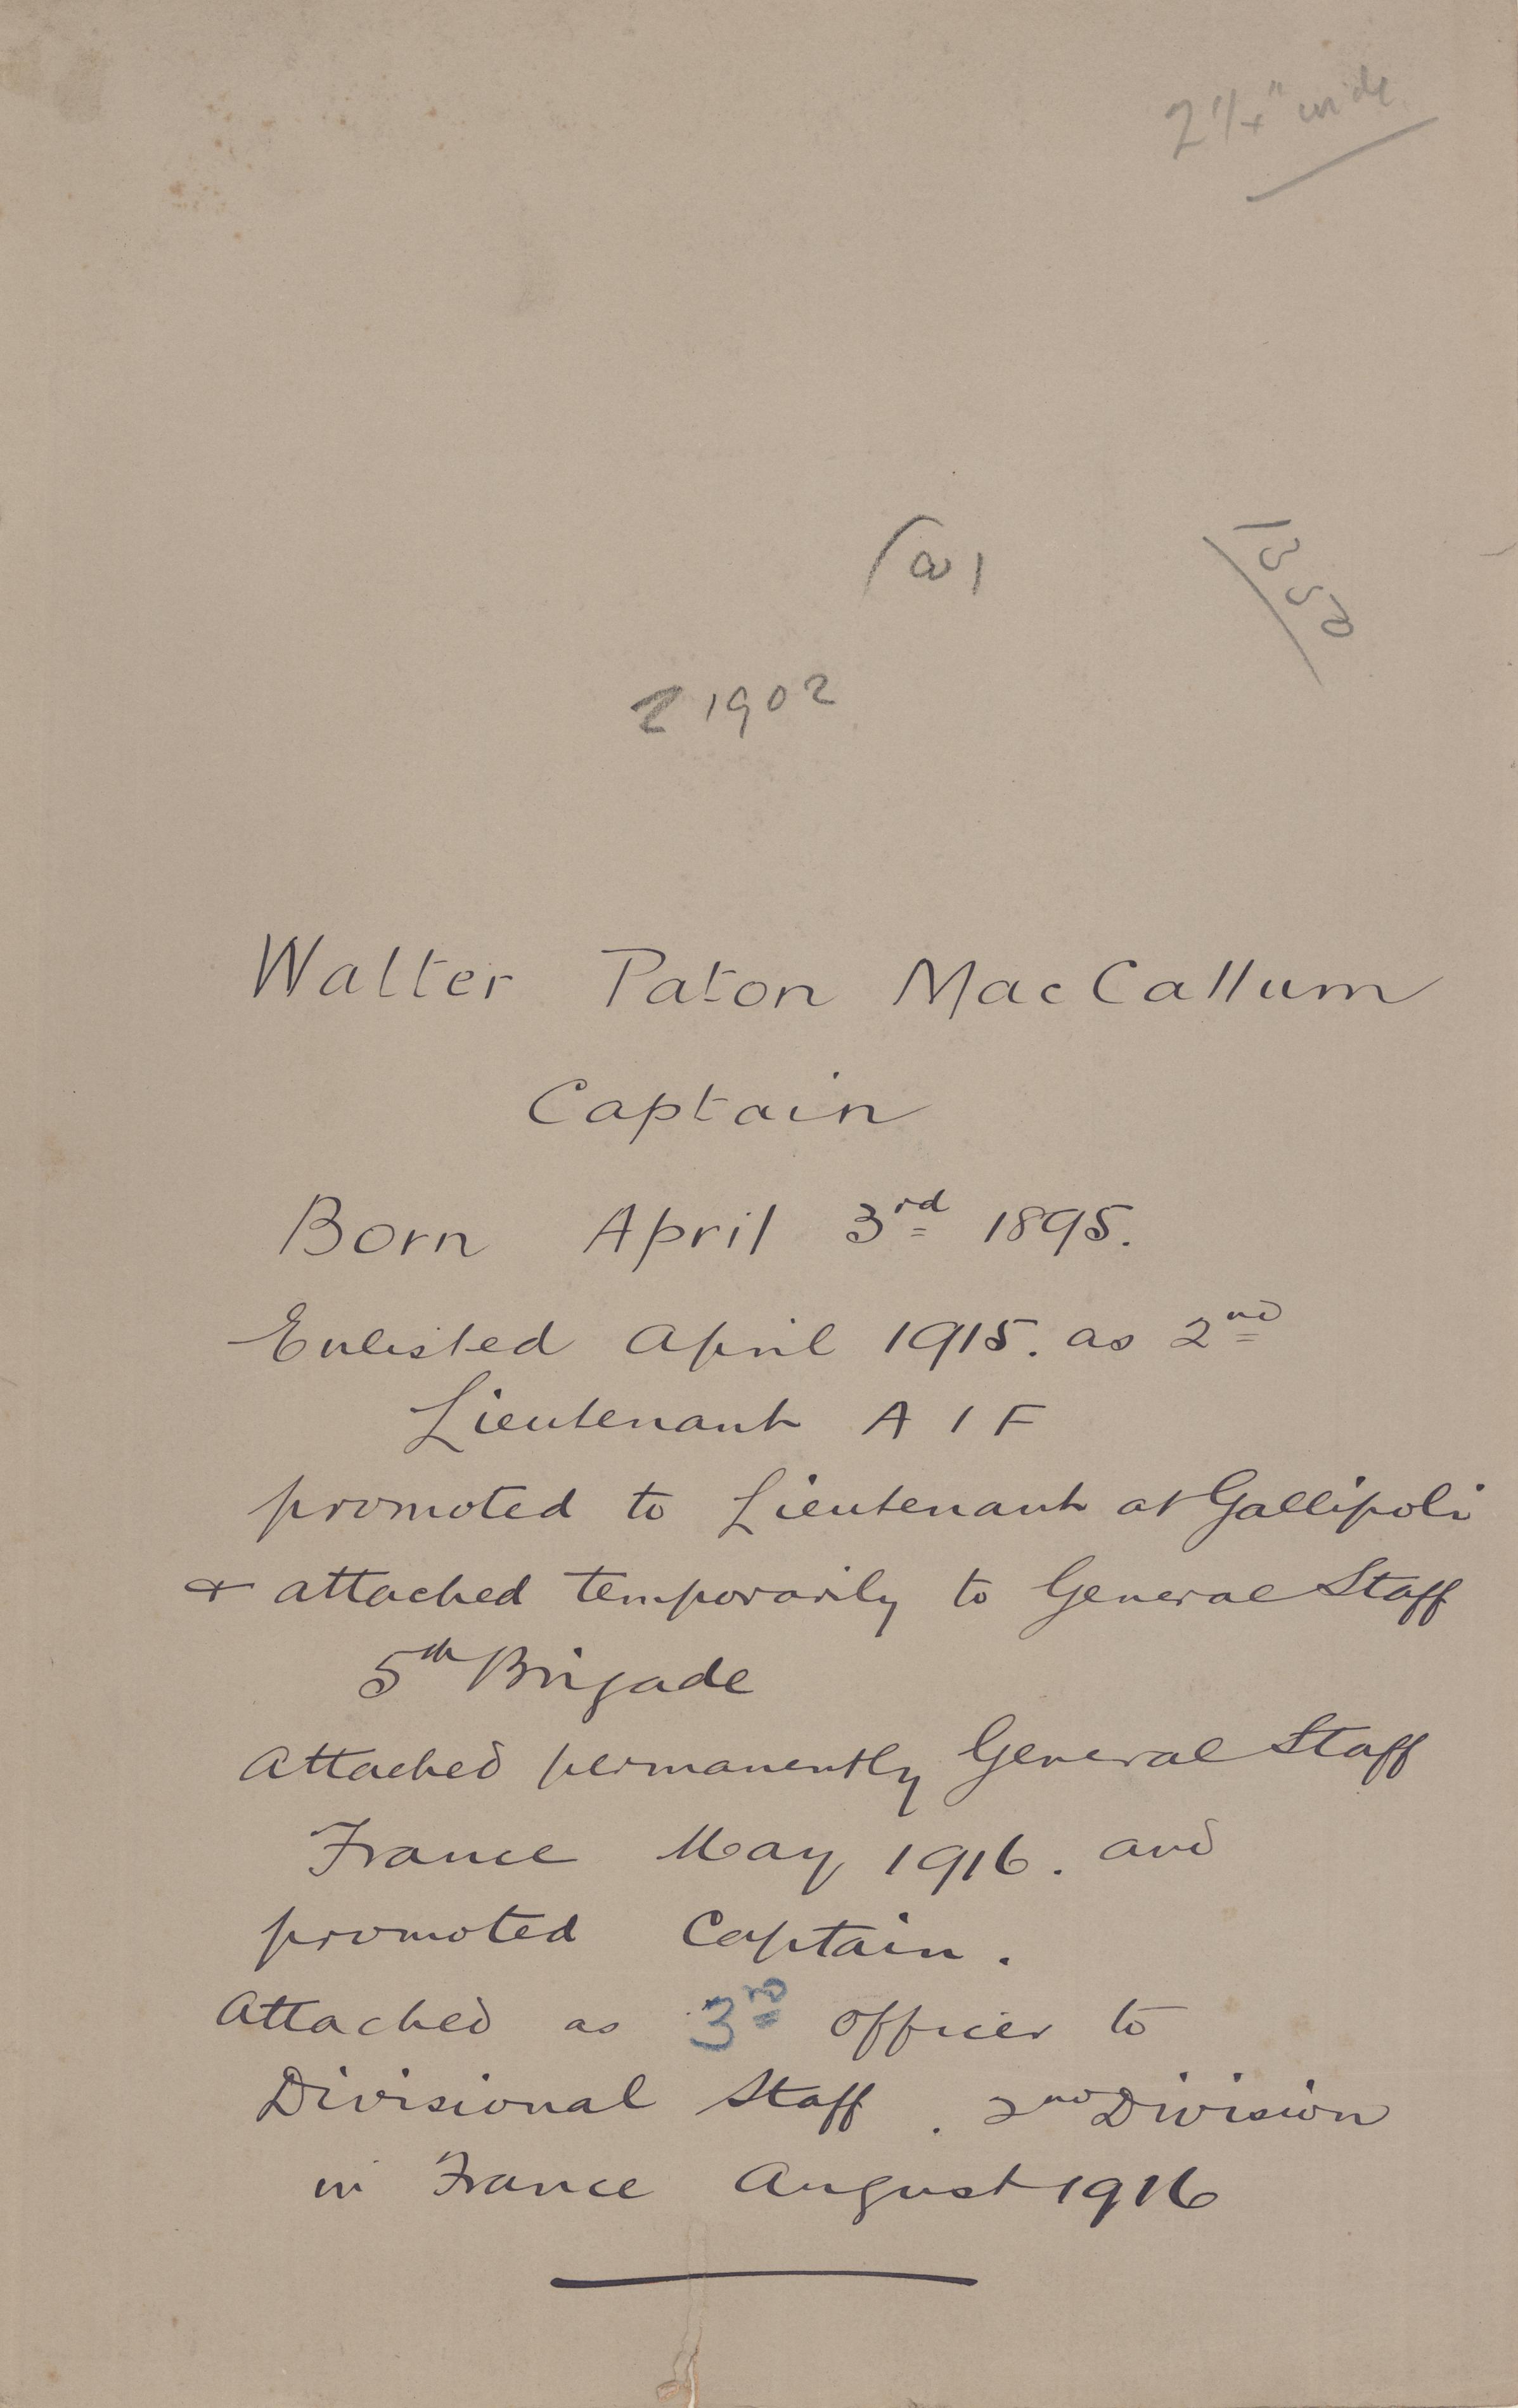 2 1/4" wide
21902
Walter Paton MacCallum
Captain
Born April 3rd 1895.
Enlisted April 1915. as 2nd
Lieutenant A I F
promoted to Lieutenant at Gallipoli
& attached temporarily to General Staff
5th Brigade
Attached permanently General Staff
France May 1916. and
promoted Captain.
Attached as 3rd officer to
Divisional Staff. 2nd Division
in France August 1916